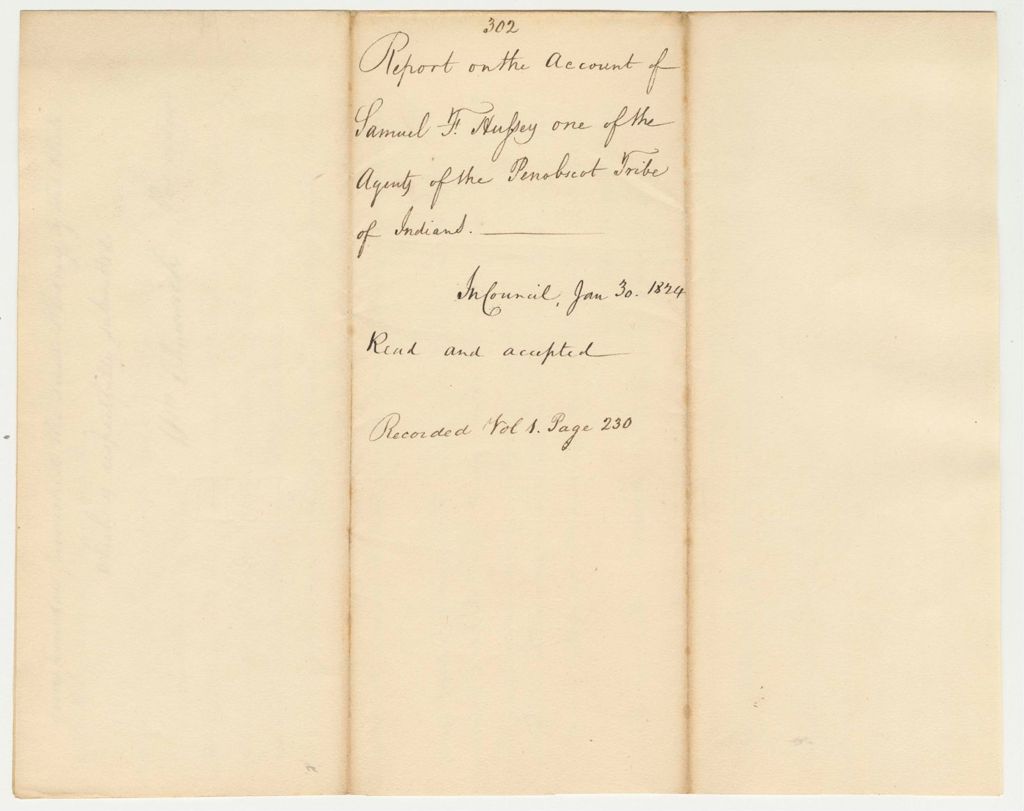 302
Report on the Account of
Samuel F. Hussey one of the
Agents of the Penobscot Tribe
of Indians.
In Council, Jan 30. 1824
Read and accepted
Recorded Vol 1. Page 230